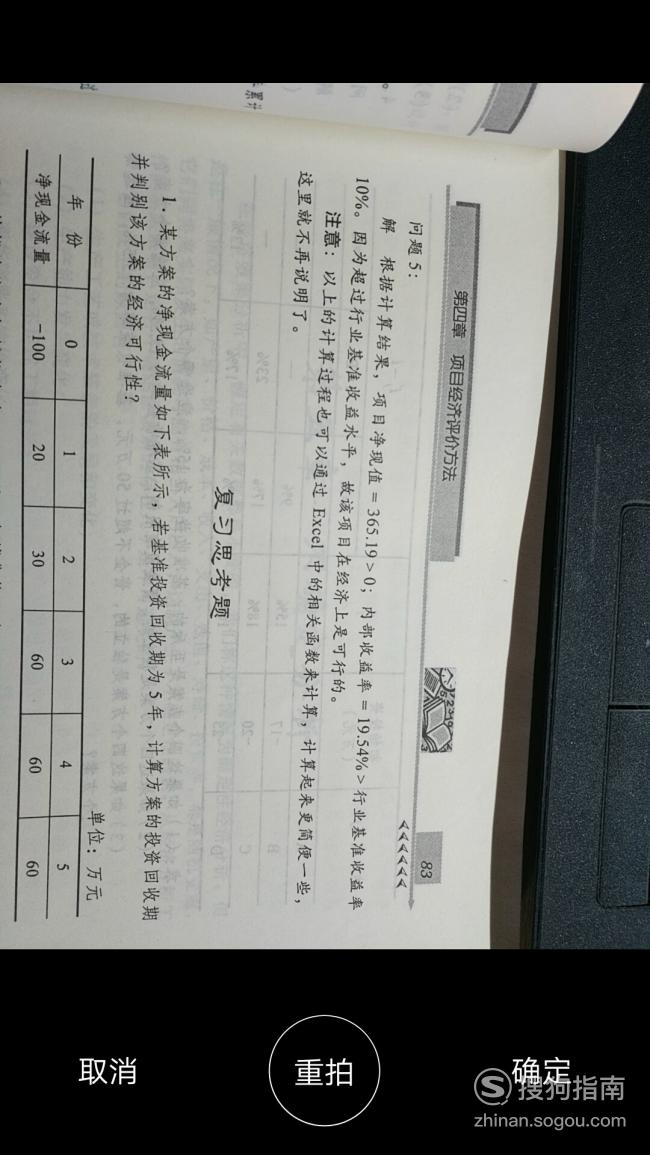 第四章 项目经济评价方法
83
问题5：
解 根据计算结果，项目净现值＝365.19＞0；内部收益率＝19.54%＞行业基准收益率
10%。因为超过行业基准收益水平，故该项目在经济上是可行的。
注意：以上的计算过程也可以通过 Excel 中的相关函数来计算，计算起来更简便一些，
这里就不再说明了。
复习思考题
1. 某方案的净现金流量如下表所示，若基准投资回收期为5年，计算方案的投资回收期
并判别该方案的经济可行性？
单位：万元
年 份 0 1 2 3 4 5
净现金流量 -100 20 30 60 60 60
取消
重拍
确定
搜狗指南
zhinan.sogou.com